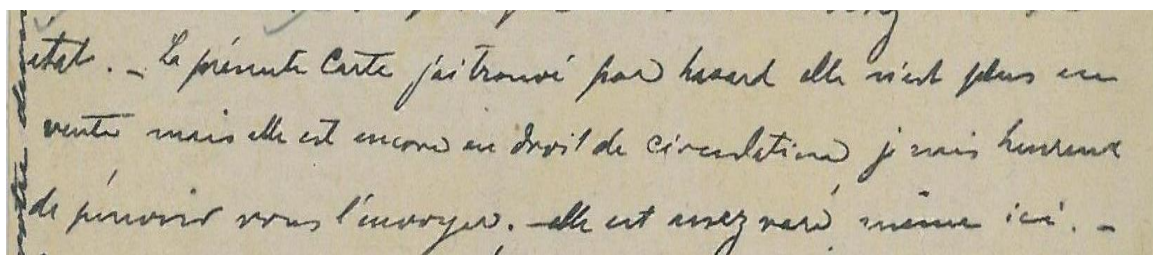 état. – La présente Carte j'ai trouvé par hasard elle n'est plus en
vente mais elle est encore en droit de circulation je suis heureux
de pouvoir vous l'envoyer. – elle est assez rare même ici. –